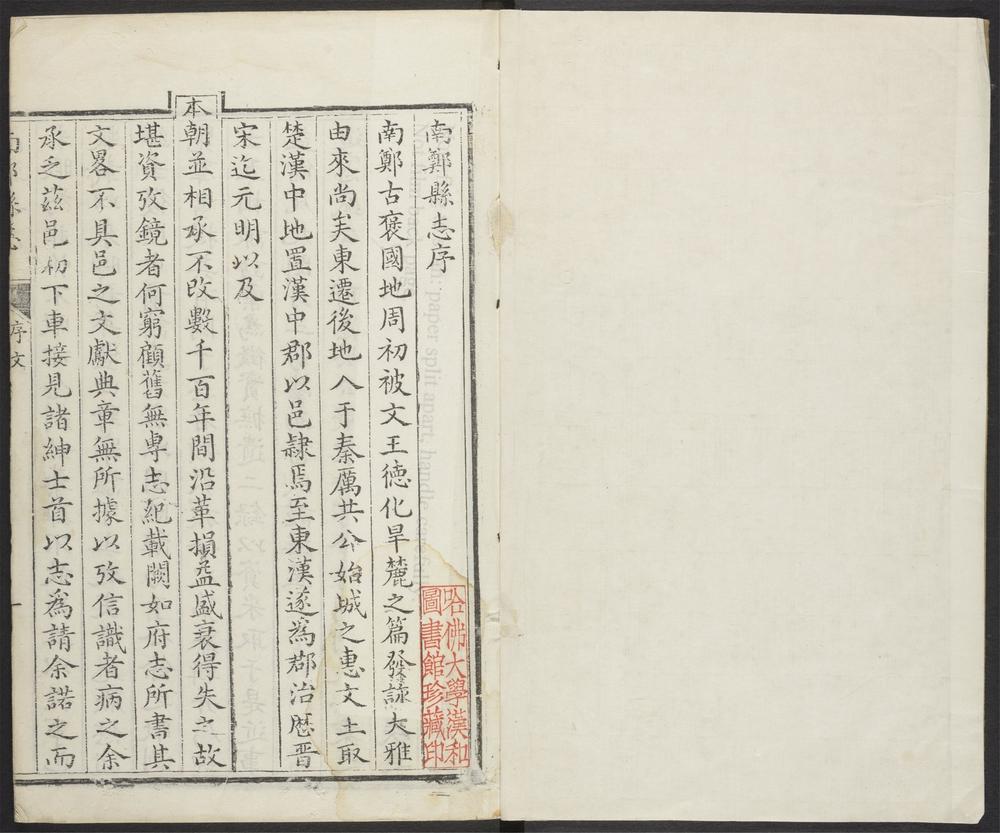 南鄭縣志序
南鄭古褒國地周初被文王德化旱麓之篇發詠大雅
由來尚矣東遷後地入于秦厲共公始城之惠文王取
楚漢中地置漢中郡以邑隷焉至東漢遂為郡治歷晋
宋迄元明以及
本朝並相承不改數千百年間沿革損益盛衰得失之故
堪資攷鏡者何窮顧舊無專志紀載闕如府志所書其
文畧不具邑之文獻典章無所據以攷信識者病之余
承乏茲邑初下車接見諸紳士首以志為請余諾之而
南鄭縣志
序文
一
哈佛大學漢和
圖書館珍藏印